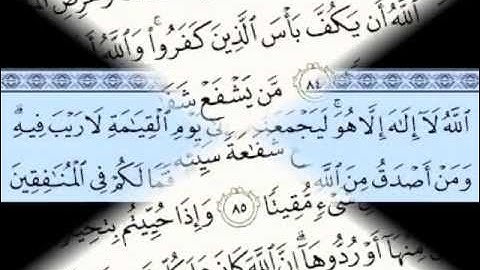 ٱللَّهُ أَن يَكُفَّ بَأْسَ ٱلَّذِينَ كَفَرُوا۟ۚ وَٱللَّهُ أَ
٨٤ مَّن يَشْفَعْ شَفَـ
ٱللَّهُ لَآ إِلَـٰهَ إِلَّا هُوَۚ لَيَجْمَعَنَّـ لَىٰ يَوْمِ ٱلْقِيَـٰمَةِ لَا رَيْبَ فِيهِۗ
شَفَـٰعَةً سَيِّئَةً
وَمَنْ أَصْدَقُ مِنَ ٱللَّهِ فَمَا لَكُمْ فِى ٱلْمُنَـٰفِقِينَ
شَىْءٍ مُّقِيتًا ٨٥ وَإِذَا حُيِّيتُم بِتَحِيَّـ
مِنْهَآ أَوْ رُدُّوهَآۗ إِنَّ ٱللَّهَ كَانَ عَلَىٰ كُلِّ